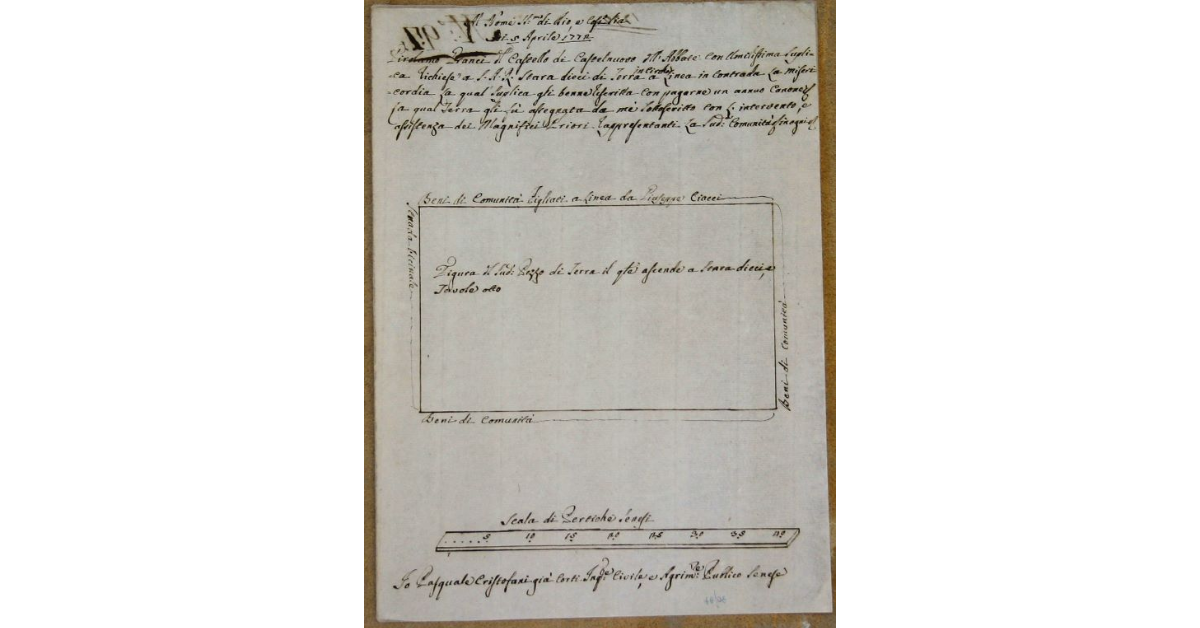 Al Nome SS.mo di Dio, e così sia
Di 5 Aprile 1778
Girolamo Banci di Castello di Castelnuovo dell'Abbate con Umilissima Supli-
ca richiese a S. A. R. Stara dieci di Terra in circa a Linea in Contrada La Miseri
cordia la qual Suplica gli benne rescritta con pagarne un annuo Canone
la qual Terra gli fù assegnata da me Sottoscritto con L'intervento, e
assistenza dei Magnifici Priori Rappresentanti La Sud.a Comunità
Beni di Comunità Pigliati a Linea da Giuseppe Ciacci
Strada Vicinale
Figura il Sud.o Pezzo di Terra il qle ascende a Stara dieci, e
Tavole otto
Beni di Comunità
Beni di Comunità
Scala di Pertiche Senesi
5 10 15 20 25 30 35 40
Io Pasquale Cristofani già Corti Ing.re Civile, e Agrim.re Publico Senese